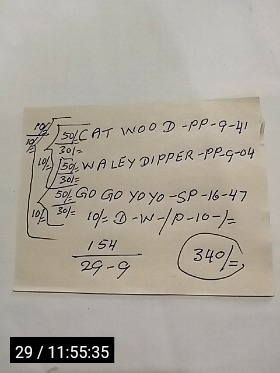 10/- 50/- CAT WOOD - PP - 9 - 41
10/- 30/-
10/- 50/- WALEY DIPPER - PP - 9 - 04
30/-
50/- GO GO YO YO - SP - 16 - 47
10/- 30/- 10/- D - W - / P - 10 - /=
154
29 - 9
340/=
29 / 11:55:35